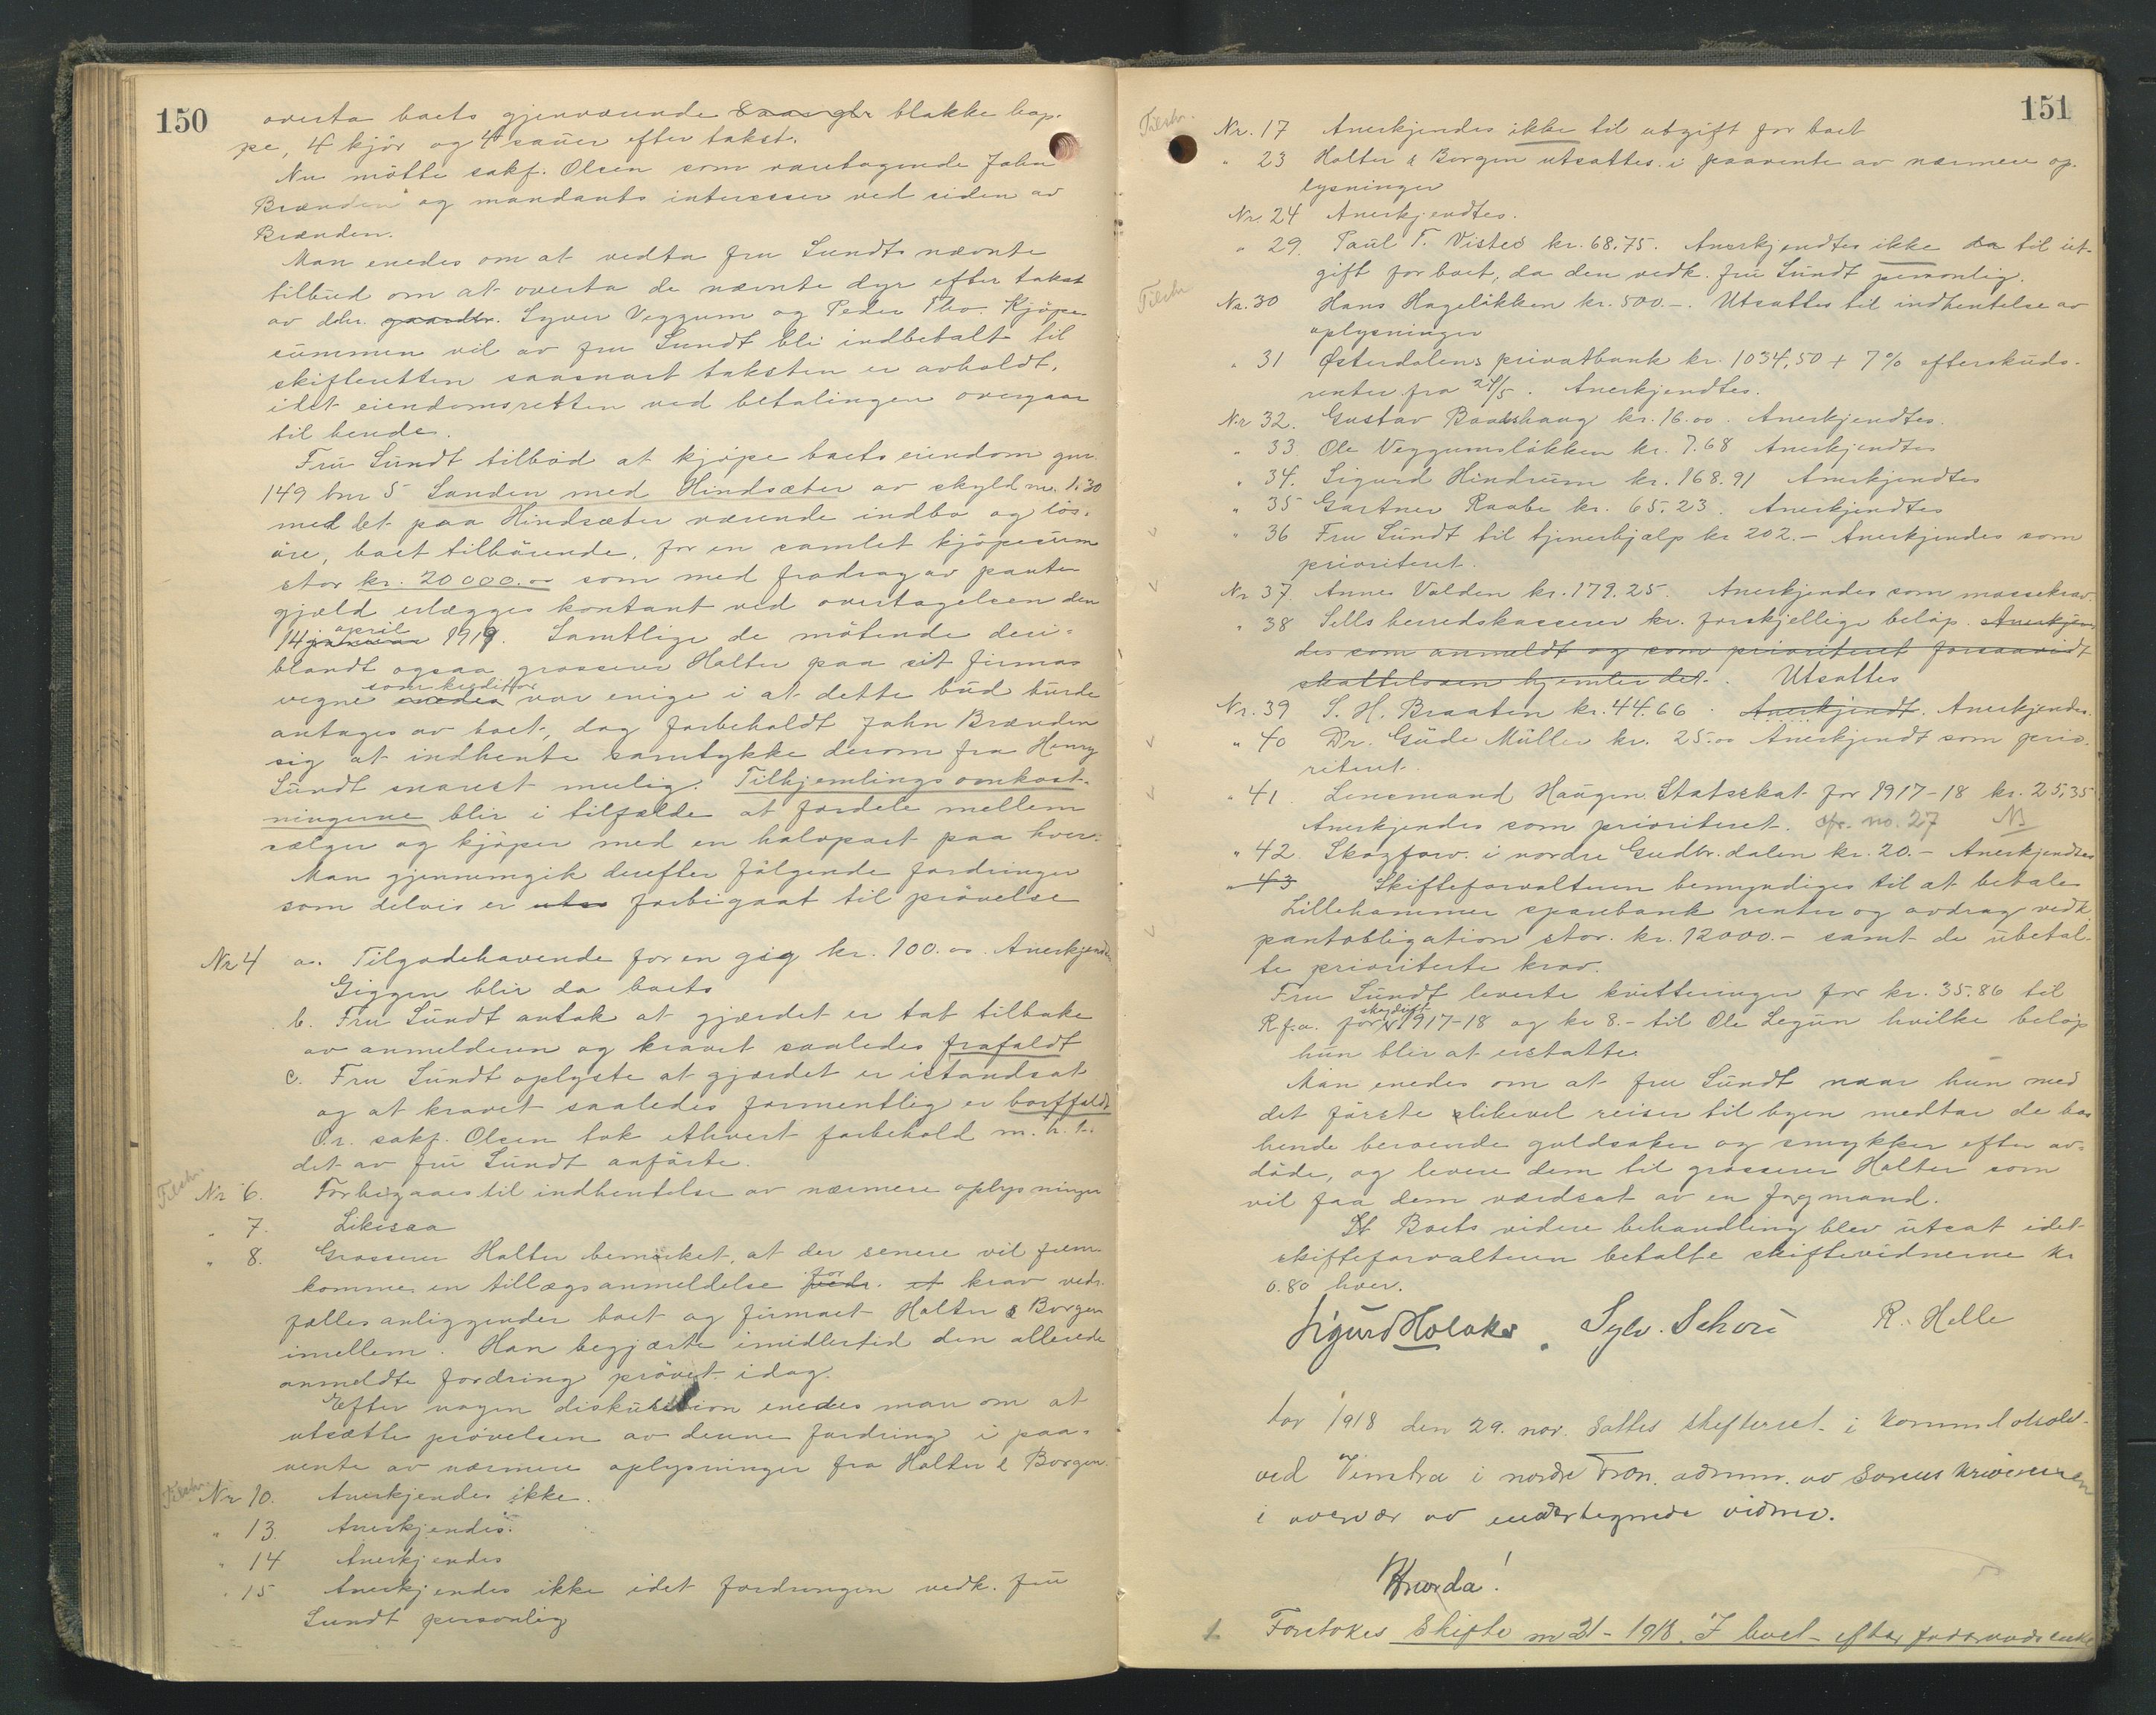 150
overta boets gjenværende blakke hop-
pe, 4 kjør og 4 sauer efter takst.
Nu møtte sakf. Olsen som varetagende John
Brænden og mandants interesser ved siden av
Brænden.
Man enedes om at vedta fru Sundts nævnte
tilbud om at overta de nævnte dyr efter takst
av dhr. gaardbr. Syver Veggum og Peder Tho. Kjøpe
summen vil av fru Sundt bli indbetalt til
skifteretten saasnart taksten er avholdt,
idet eiendomsretten ved betalingen overgaar
til hende.
Fru Sundt tilbød at kjøpe boets eiendom gnr.
149 bnr 5 Sanden med Hindsæter av skyld m. 1.30
med det paa Hindsæter værende indbo og løs-
øre, boet tilhørende, for en samlet kjøpesum
stor kr. 20000.00 som med fradrag av pante
gjæld erlægges kontant ved overtagelsen den
14 januar april 1919. Samtlige de møtende deri-
blandt ogsaa grosserer Halter paa sit firmas
vegne som kreditor var enige i at dette bud burde
antages av boet, dog forbeholdt John Brænden
sig at indhente samtykke derom fra Henry
Sundt snarest mulig. Tilhjemlingsomkost-
ningerne blir i tilfælde at fordele mellem
sælger og kjøper med en halvpart paa hver.
Man gjennemgik derefter følgende fordringer
som delvis er forbigaat til prøvelse
Nr 4 a. Tilgodehavende for en gig kr. 100.00. Anerkjendes.
Giggen blir da boets
b. Fru Sundt antok at gjærdet er tat tilbake
av anmelderen og kravet saaledes frafaldt
c. Fru Sundt oplyste at gjærdet er istandsat
og at kravet saaledes formentlig er bortfaldt
O.r. sakf. Olsen tok ethvert forbehold m.h.t.
det av fru Sundt anførte.
Tilskr. Nr 6. Forbigaaes til indhentelse av nærmere oplysninger
" 7. Likesaa
" 8. Grosserer Halter bemerket, at der senere vil frem-
komme en tillægsanmeldelse vedr. for et krav vedr.
fælles anliggender boet og firmaet Halter & Borgen
imellem. Han begjærte imidlertid den allerede
anmeldte fordring prøvet idag.
Efter nogen diskussion enedes man om at
utsætte prøvelsen av denne fordring i paa-
vente av nærmere oplysninger fra Halter & Borgen.
Tilskr. Nr 10. Anerkjendes ikke.
" 13. Anerkjendes.
" 14 Anerkjendes
" 15 Anerkjendes ikke idet fordringen vedk. fru
Sundt personlig
151
Tilskr. Nr. 17 Anerkjendes ikke til utgift for boet
" 23 Halter & Borgen utsattes i paavente av nærmere op-
lysninger
Nr. 24 Anerkjendtes.
" 29. Paul T. Visted kr. 68.75. Anerkjendtes ikke da til ut-
gift for boet, da den vedk. fru Sundt personlig.
Tilskr Nr. 30 Hans Hageløkken kr. 500.-. Utsattes til indhentelse av
oplysninger
" 31 Østerdalens privatbank kr. 1034,50 + 7% efterskuds-
renter fra 24/5. Anerkjendtes.
Nr 32. Gustav Baukhaug kr. 16.00. Anerkjendtes.
" 33. Ole Veggumsløkken kr. 7.68 Anerkjendtes
" 34. Sigurd Hindrum kr. 168.91 Anerkjendtes
" 35 Gartner Raabe kr. 65.23. Anerkjendtes
" 36 Fru Sundt til tjenerhjælp kr 202.- Anerkjendes som
prioritert.
Nr 37. Anne Valden kr. 179.25. Anerkjendes som massekrav.
" 38 Sells herredskasserer kr. forskjellige beløp. Anerkjen-
des som anmeldt og som prioritert forsaavidt
skatteloven hjemler det. Utsattes
Nr. 39 S. H. Braaten kr. 44.66. Anerkjendt. Anerkjendes.
" 40 Dr. Gude Müller kr. 25.00 Anerkjendt som prio-
ritert.
" 41 Lensmand Haugen. Statsskat for 1917-18 kr. 25.35
Anerkjendes som prioritert. cfr. no. 27 NB
" 42. Skogforv. i nordre Gudbr.dalen kr. 20.- Anerkjendtes
" 43 Skifteforvalteren bemyndiges til at betale
Lillehammer sparebank renter og avdrag vedk.
pantobligation stor. kr. 12000.- samt de ubetal-
te prioriterte krav.
Fru Sundt leverte kvitteringer for kr. 35.86 til
R.f.a. for 1917-18 og kr 8.- til Ole Legun hvilke beløp
hun blir at erstatte.
Man enedes om at fru Sundt naar hun med
det første likevel reiser til byen medtar de hos
hende beroende guldsaker og smykker efter av-
døde, og levere dem til grosserer Halter som
vil faa dem værdsat av en fagmand.
Boets videre behandling blev utsat idet
skifteforvalteren betalte skiftevidnerne kr
0.80 hver.
Sigurd Holaker. Sylv. Schou R. Helle
Aar 1918 den 29. nov. sattes skifteret i
ved Vinstra i nordre Fron. adm. av
i overvær av undertegnede vidner.
Hvorda!
1. Foretokes Skifte nr 21 - 1918. I boet efter